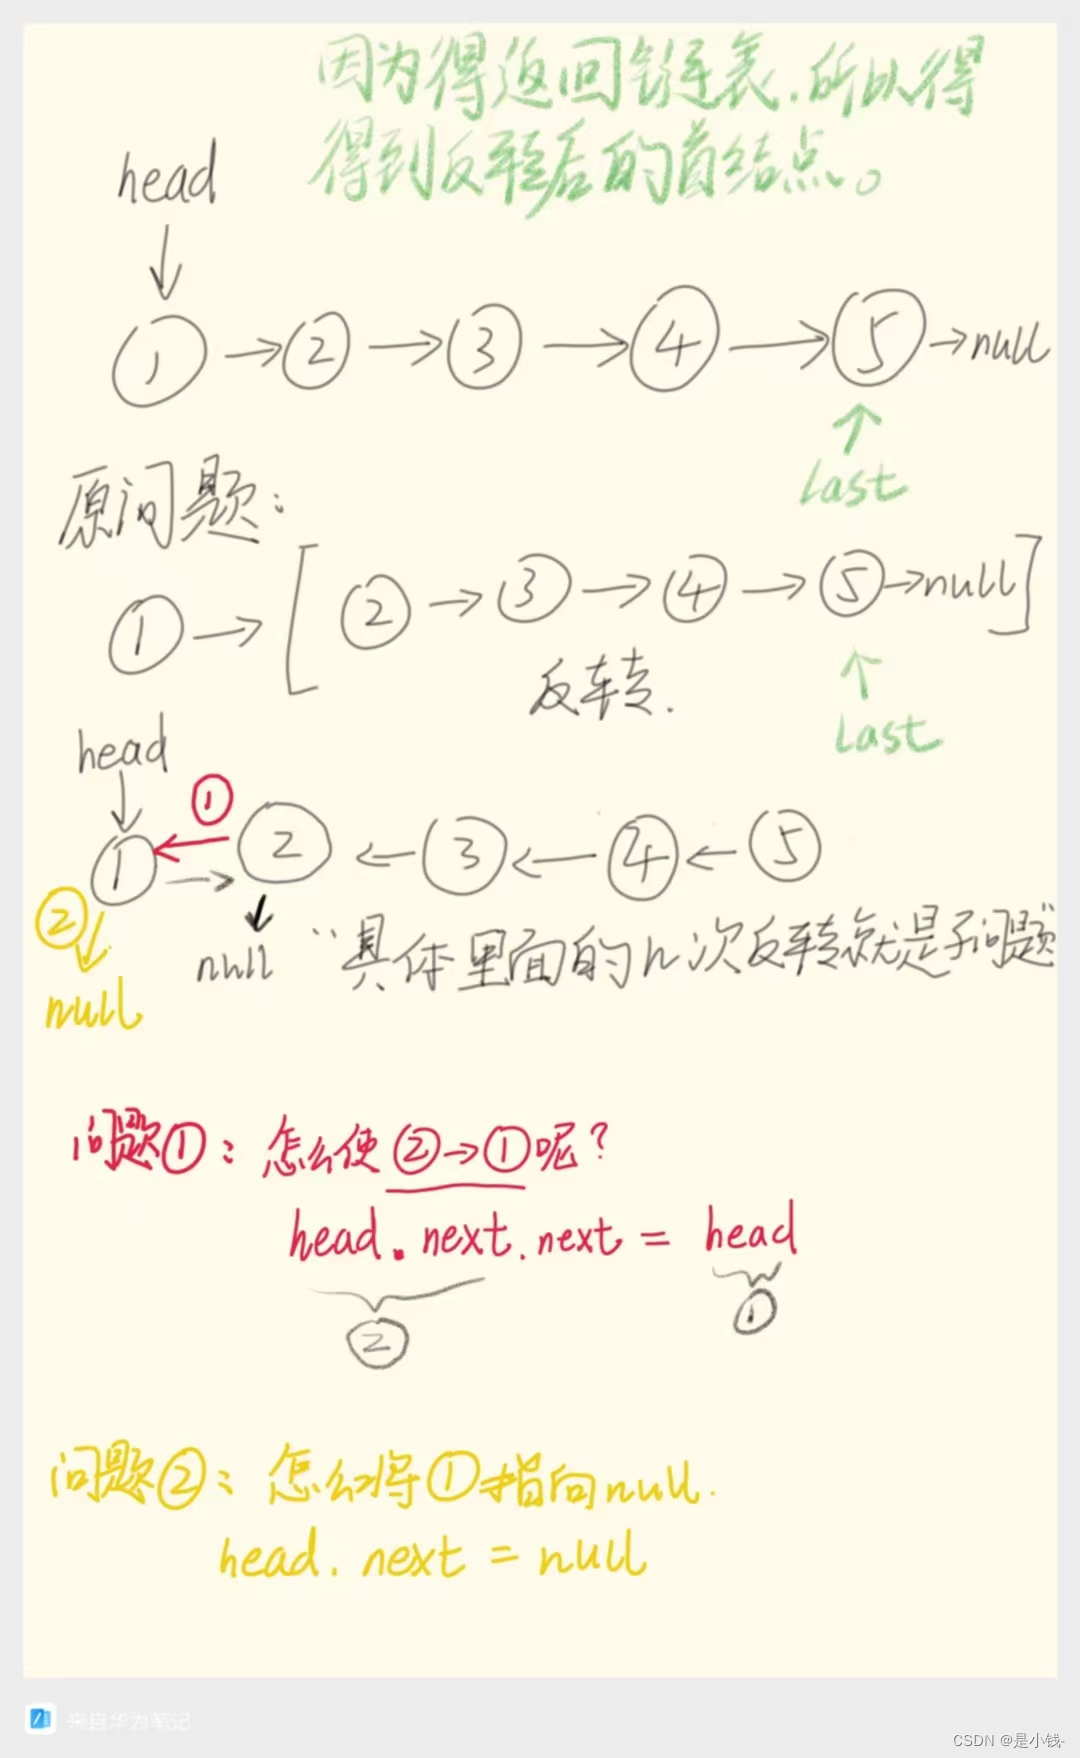 因为得返回链表.所以得
得到反转后的首结点。
head
1 → 2 → 3 → 4 → 5 → null
last
原问题:
1 → [ 2 → 3 → 4 → 5 → null ]
反转.
last
head
①
1 → 2 ← 3 ← 4 ← 5
②
null
null
"具体里面的n次反转就是子问题"
问题①: 怎么使②→①呢?
head.next.next = head
② ①
问题②: 怎么将①指向null.
head.next = null
来自华为笔记
CSDN @是小钱-